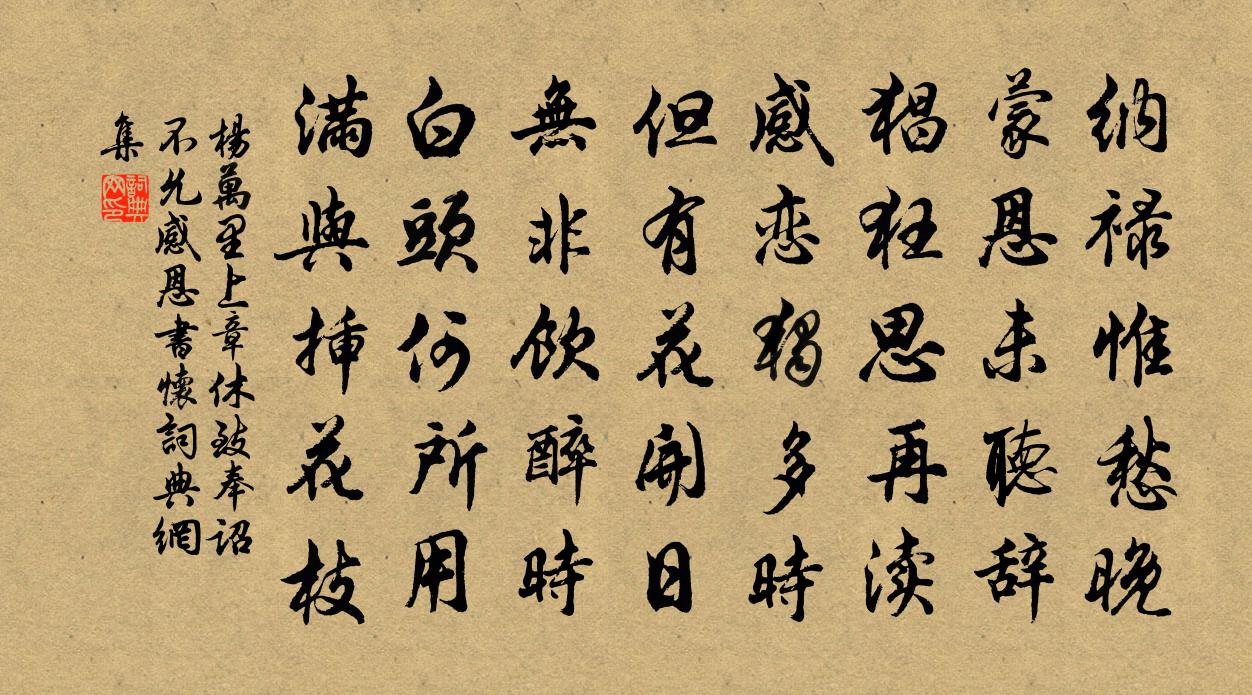 納禄惟愁晚
蒙恩未聽辞
猖狂思再渎
感恋獨多時
但有花開日
無非飲醉時
白頭何所用
滿與插花枝
楊萬里上章休致奉詔
不允感恩書懷詞典網
集
詞典
网印